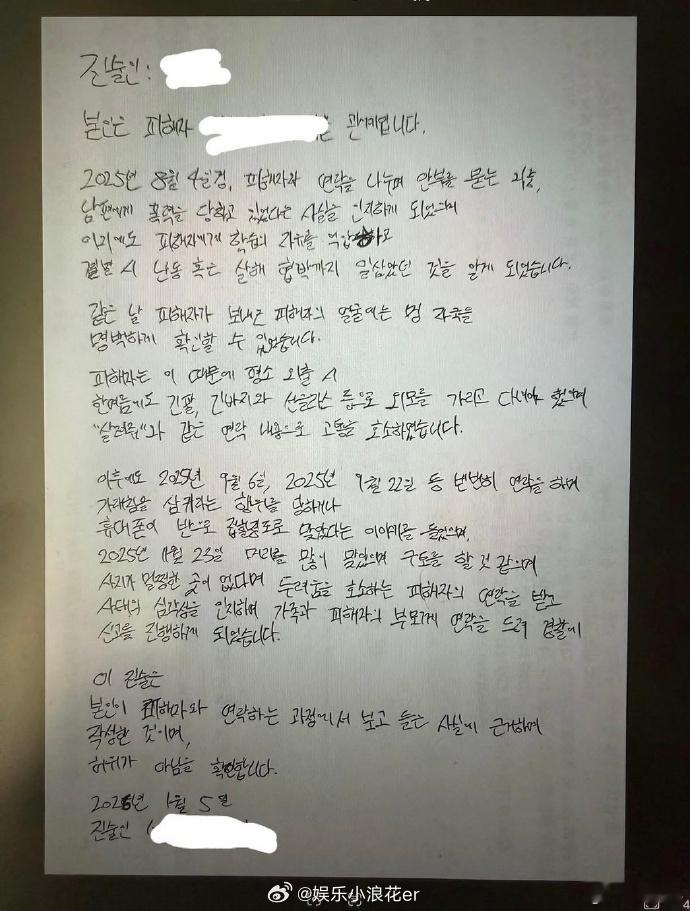 진술인:
본인은 피해자 관계입니다.
2025년 8월 4일경, 피해자와 연락을 나누며 안부를 묻는 와중,
남편에게 폭력을 당하고 있었다는 사실을 인지하게 되었으며
이외에도 피해자에게 학습의 자유를 억압하고
결별 시 난동 혹은 살해 협박까지 일삼았던 것을 알게 되었습니다.
같은 날 피해자가 보내온 피해자의 얼굴에는 멍 자국을
명백하게 확인할 수 있었습니다.
피해자는 이 때문에 평소 외출 시
한여름에도 긴팔, 긴바지와 선글라스 등으로 외모를 가리고 다녀야 했으며
"살려줘"와 같은 연락 내용으로 고통을 호소하였습니다.
이후에도 2025년 9월 6일, 2025년 9월 22일 등 빈번히 연락을 하며
가래침을 삼키라는 행위를 당하거나
휴대폰이 반으로 접힐정도로 맞았다는 이야기를 들었으며,
2025년 11월 23일 머리를 많이 맞았으며 구토를 할 것 같으며
사지가 멀쩡한 곳이 없다며 두려움을 호소하는 피해자의 연락을 받고
사태의 심각성을 인지하여 가족과 피해자의 부모께 연락을 드려 경찰에
신고를 진행하게 되었습니다.
이 진술은
본인이 피해자와 연락하는 과정에서 보고 들은 사실에 근거하여
작성한 것이며,
허위가 아님을 확인합니다.
2026년 1월 5일
진술인
@娱乐小浪花er